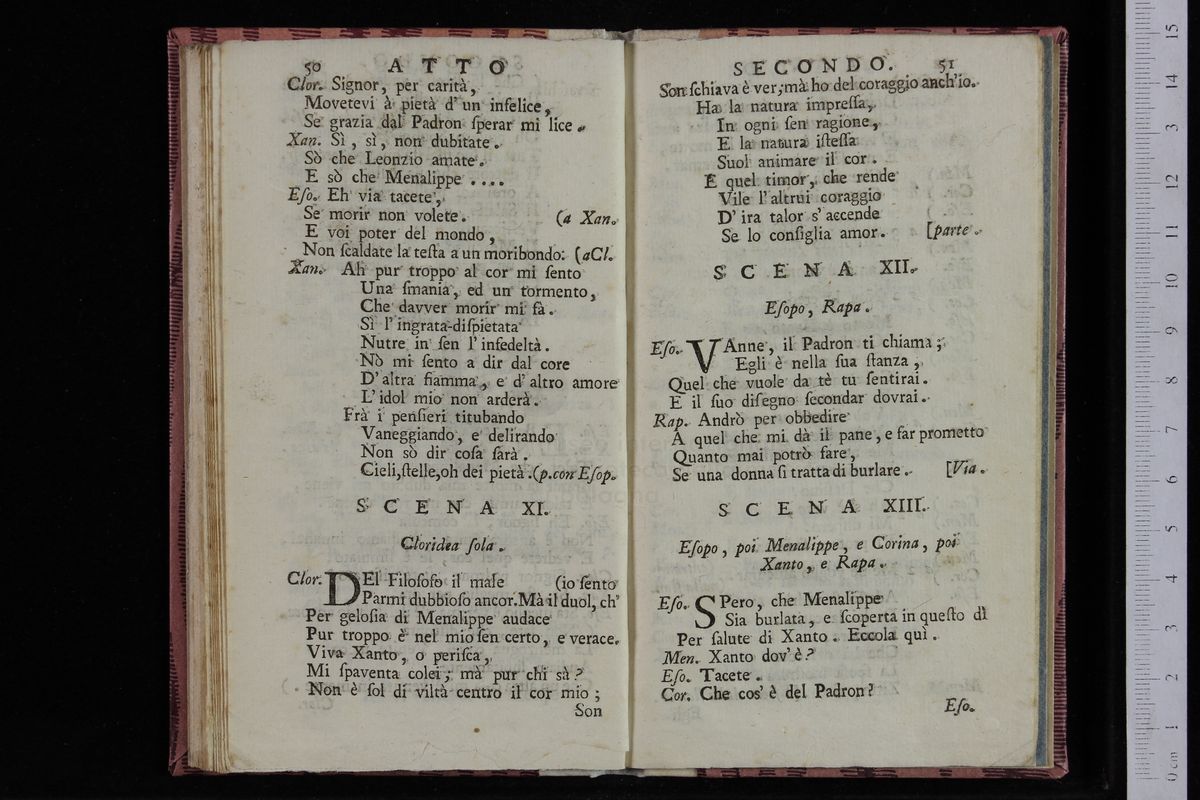 50 ATTO
Clor. Signor, per carità,
Movetevi à pietà d' un infelice,
Se grazia dal Padron ſperar mi lice.
Xan. Sì, sì, non dubitate.
Sò che Leonzio amate.
E sò che Menalippe ....
Eſo. Eh via tacete,
Se morir non volete. (a Xan.
E voi poter del mondo,
Non ſcaldate la teſta a un moribondo: (aCl.
Xan. Ah pur troppo al cor mi ſento
Una ſmania, ed un tormento,
Che davver morir mi fà.
Sì l' ingrata-diſpietata
Nutre in ſen l' infedeltà.
Nò mi ſento a dir dal core
D' altra fiamma, e d' altro amore
L' idol mio non arderà.
Frà i penſieri titubando
Vaneggiando, e delirando
Non sò dir coſa ſarà.
Cieli, ſtelle, oh dei pietà. (p. con Eſop.
SCENA XI.
Cloridea ſola.
Clor. DEl Filoſofo il male (io ſento
Parmi dubbioſo ancor. Mà il duol, ch'
Per geloſia di Menalippe audace
Pur troppo è nel mio ſen certo, e verace.
Viva Xanto, o periſca,
Mi ſpaventa colei; mà pur chi sà?
Non è ſol di viltà centro il cor mio;
Son
SECONDO. 51
Son ſchiava è ver; mà ho del coraggio anch'io.
Ha la natura impreſſa,
In ogni ſen ragione,
E la natura iſteſſa
Suol animare il cor.
E quel timor, che rende
Vile l' altrui coraggio
D' ira talor s' accende
Se lo conſiglia amor. [parte.
SCENA XII.
Eſopo, Rapa.
Eſo. VAnne, il Padron ti chiama;
Egli è nella ſua ſtanza,
Quel che vuole da tè tu ſentirai.
E il ſuo diſegno ſecondar dovrai.
Rap. Andrò per obbedire
A quel che mi dà il pane, e far prometto
Quanto mai potrò fare,
Se una donna ſi tratta di burlare. [Via.
SCENA XIII.
Eſopo, poi Menalippe, e Corina, poi
Xanto, e Rapa.
Eſo. SPero, che Menalippe
Sia burlata, e ſcoperta in queſto dì
Per ſalute di Xanto. Eccola quì.
Men. Xanto dov' è?
Eſo. Tacete.
Cor. Che cos' è del Padron?
Eſo.
0 cm 1 2 3 4 5 6 7 8 9 10 11 12 13 14 15